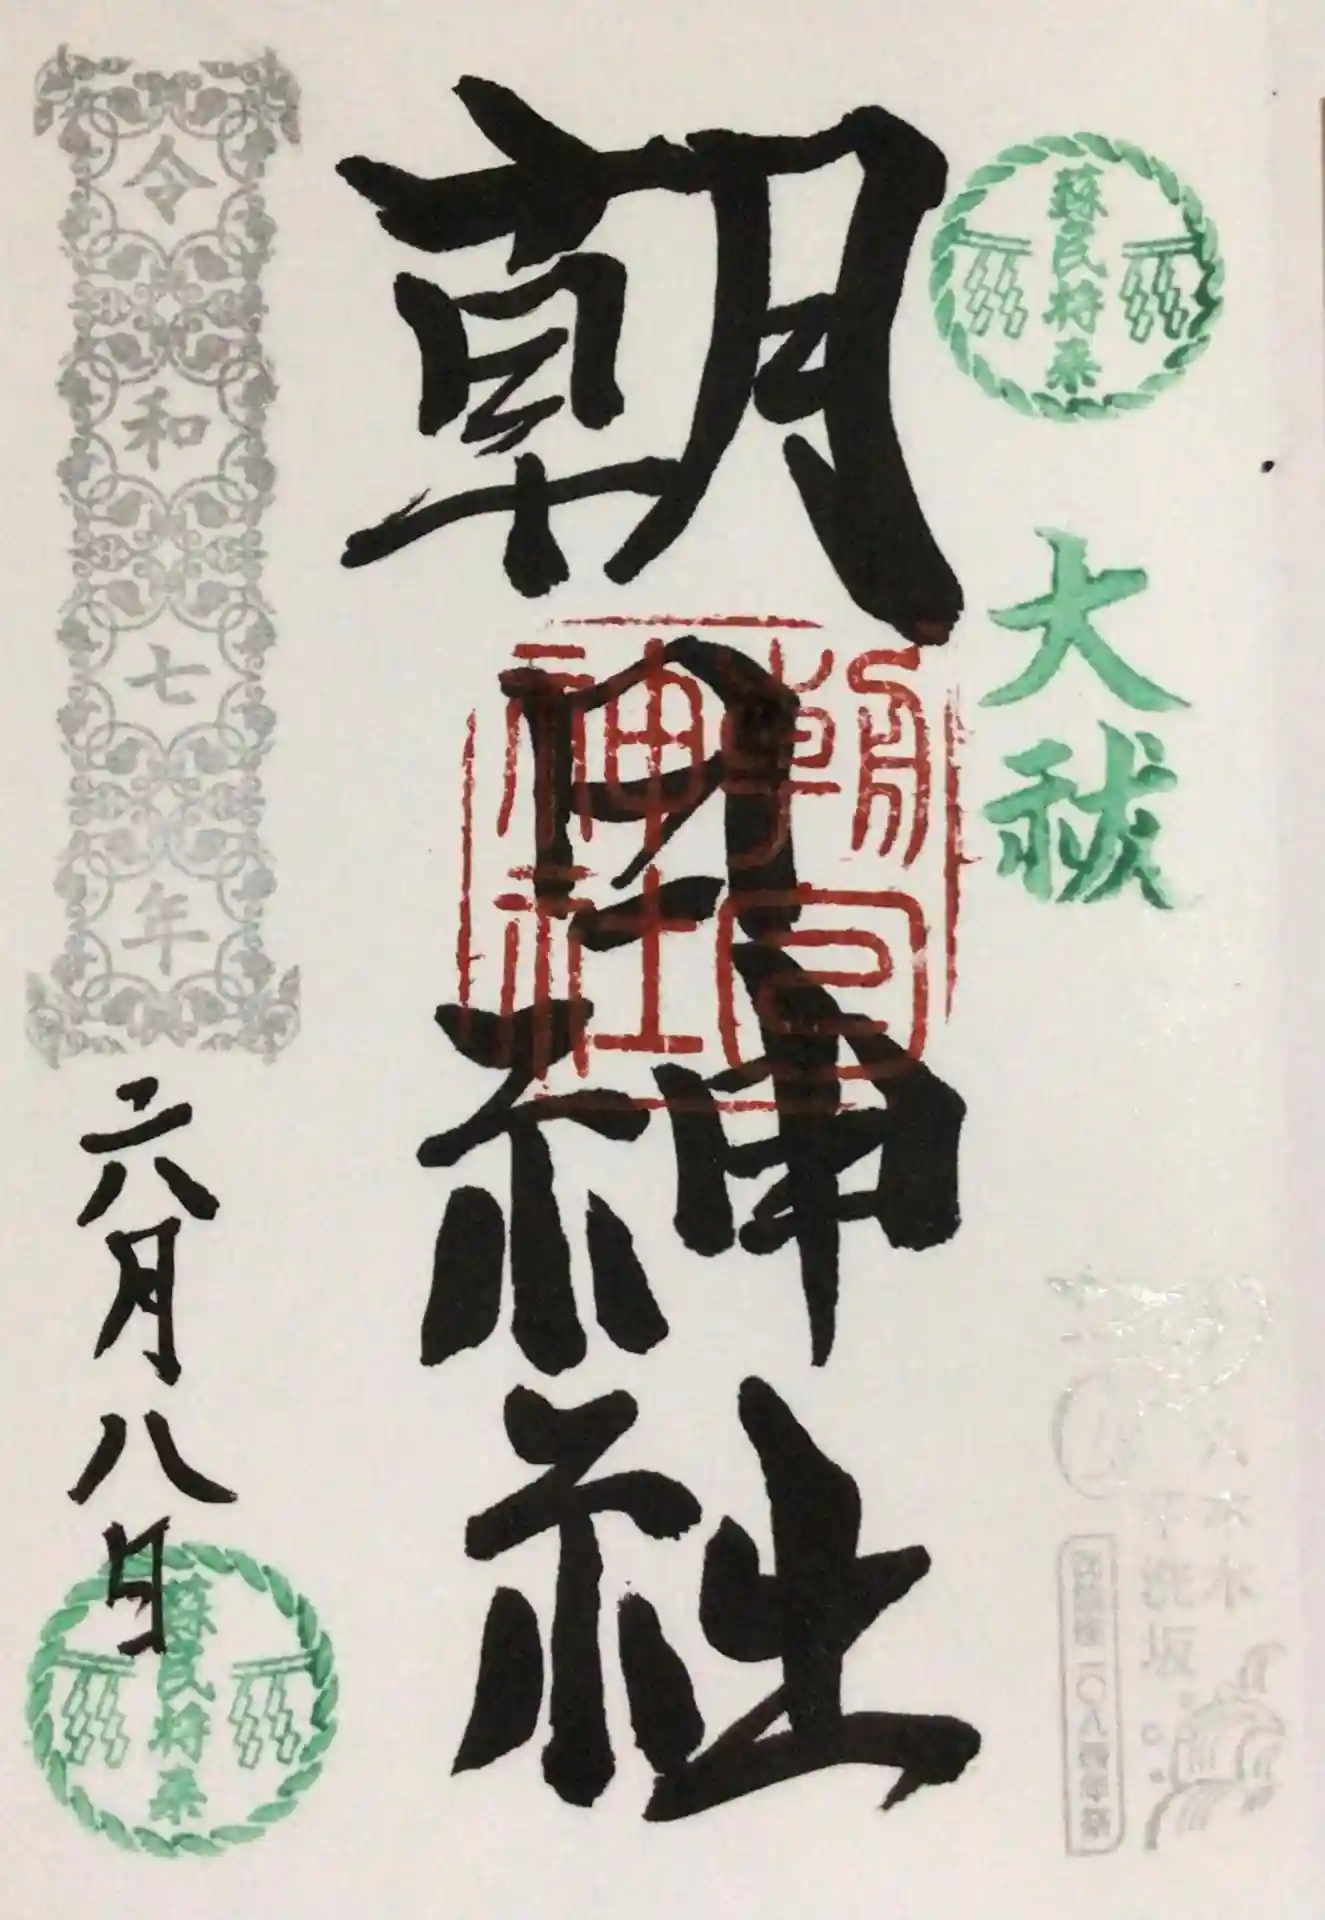 蘇民将来
大祓
六本木
手洗坂
朝日神社
朝日神社
令和七年
六月八日
蘇民将来